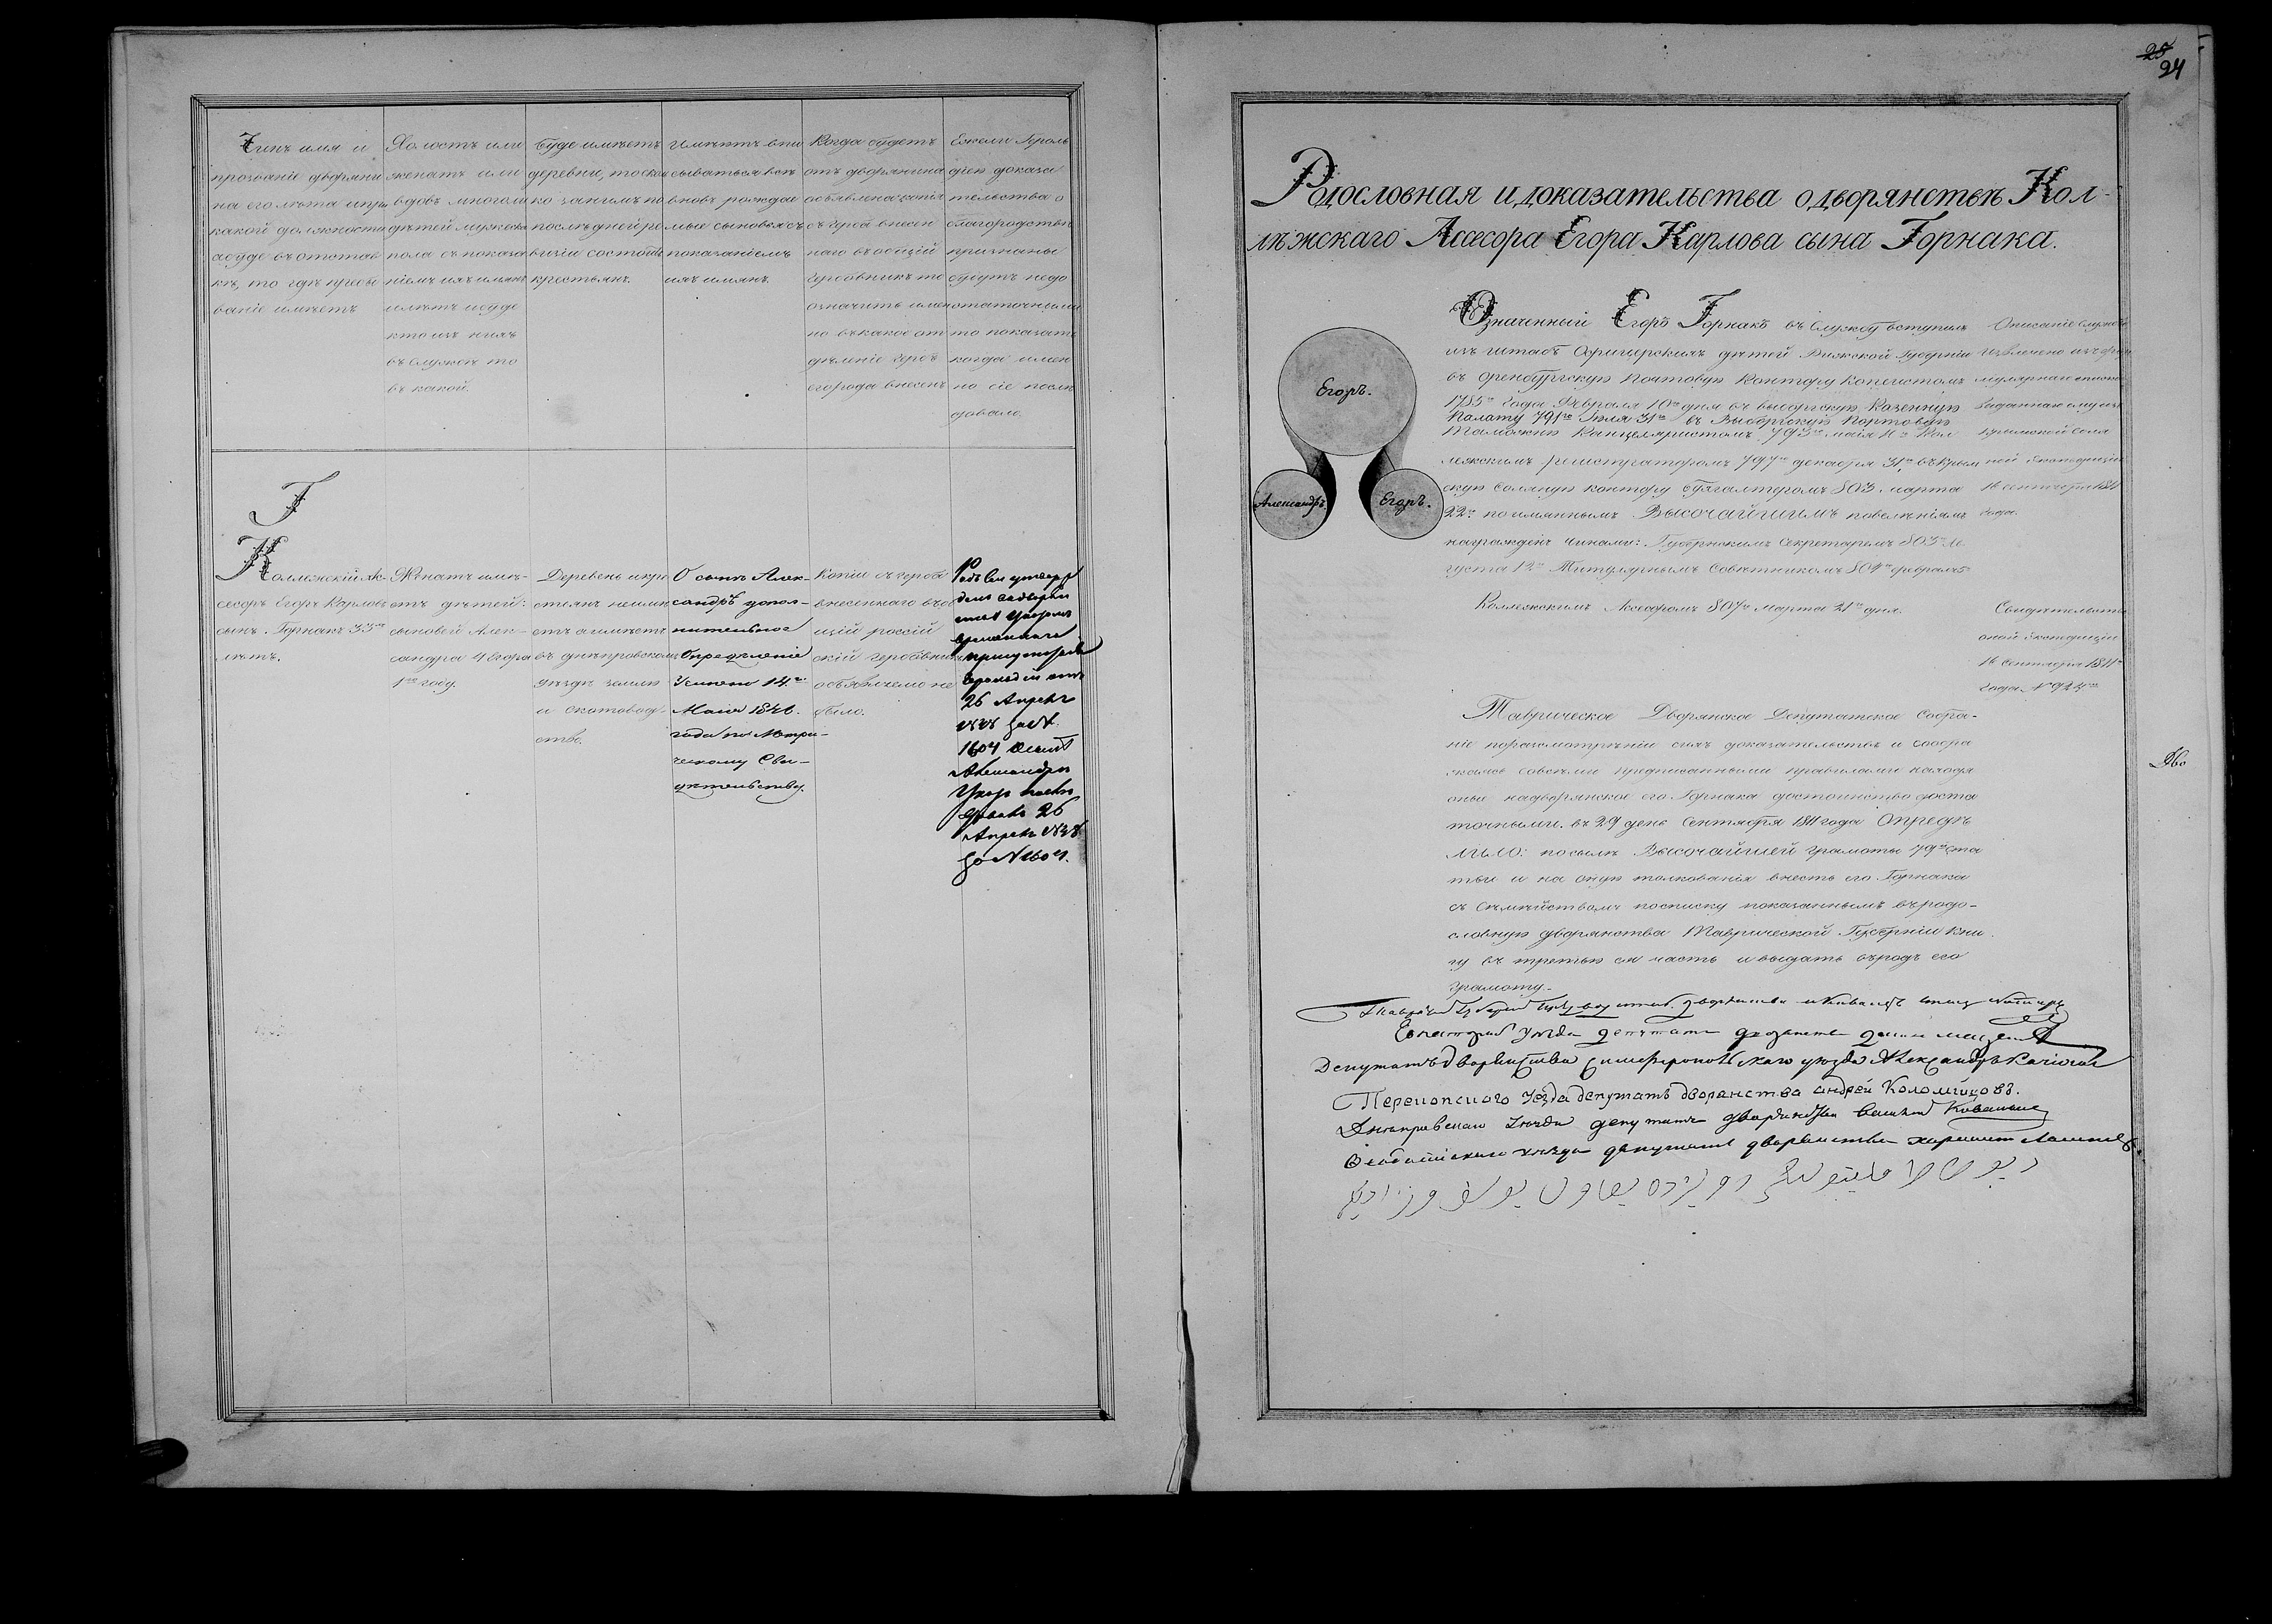 Чинъ имя и
прозваніе дворяни
на его лѣта и при
какой должности
а буде въ отстав
кѣ, то гдѣ пребы
ваніе имѣетъ
Холостъ или
женатъ или
вдовъ много ли
дѣтей мужеска
пола съ показа
ніемъ ихъ имянъ
лѣтъ и буде
кто изъ нихъ
въ службѣ то
въ какой.
Буде имѣетъ
деревни, то сколь
ко за нимъ по
послѣдней ре
визіи состоитъ
крестьянъ.
Имѣютъ впи
сываться всѣ
вновь рождае
мые сыновья съ
показаніемъ
ихъ имянъ.
Когда будетъ
отъ дворянина
объявлена копія
съ герба внесен
наго въ общій
гербовникъ то
означить имен
но въ какое от
дѣленіе гербъ
его рода внесенъ
Ежели Героль
діею доказа
тельства о
благородствѣ
признаны
будутъ недо
статочными
то показать
когда имен
но сіе послѣ
довало.
Г
Коллежскій Ас-
сесоръ Егоръ Карловъ
сынъ Горнакъ 33хъ
лѣтъ.
Женатъ имѣ-
етъ дѣтей:
сыновей Алек-
сандра 4 Егора
1го году.
Деревень и кре
стьянъ неимѣ
етъ а имѣетъ
въ днѣпровскомъ
уѣздѣ землю
и скотовод-
ство.
О сынѣ Алек-
сандрѣ допол-
нительное
Опредѣленіе
14го
Маія 1841.
года по Метри-
ческому Сви-
дѣтельству.
Копіи съ герба
внесеннаго въ об
щій россій
скій гербовникъ
объявляемо не
было.
26 Апрѣля
1604
Александръ
26
Апрѣля
за N 1604.
25
24
Родословная и доказательства о дворянствѣ Кол-
лѣжскаго Ассесора Егора Карлова сына Горнака.
Егоръ.
Александръ.
Егоръ.
Означенный Егоръ Горнакъ въ службу вступилъ
изъ штабъ Офицерскихъ дѣтей Рижской Губерніи
въ оренбургскую почтовую контору копеистомъ
1785го года Февраля 10го дня въ выборгскую Казенную
Палату 791го Іюля 31го въ Выборгскую Портовую
Таможню Канцеляристомъ 793го маія 11го Кол
лежскимъ регистраторомъ 797го декабря 31го, въ крым
скую соляную контору бухгалтеромъ 803. марта
22го по имяннымъ Высочайшимъ повелѣніямъ
награжденъ чинами: Губернскимъ Секретаремъ 803го Ав
густа 12го Титулярнымъ Совѣтникомъ 804го февраля 5го
Коллежскимъ Ассесоромъ 807го марта 21го дня.
Описаніе службы
извлечено изъ фор
мулярнаго списка
выданнаго ему изъ
крымской соля
ной экспедиціи
16 сентября 1811
года.
Свидѣтельство
оной экспедиціи
16 сентября 1811го
года N 924го
Таврическое Дворянское Депутатское Собра-
ніе по разсмотрѣніи сихъ доказательствъ и сообра
жаясь со всѣми предписанными правилами находя
оные на дворянское его Горнака достоинство доста
точными. въ 29 день Сентября 1811 года Опредѣ
лило: по силѣ Высочайшей грамоты 79й ста
тьи и на оную толкованія внесть его Горнака
съ семѣйствомъ по списку показаннымъ въ родо-
словную дворянства Таврической Губерніи кни
гу въ третью ея часть и выдать въ родъ его
грамоту.
Дво
уѣзда депутатъ
Депутатъ дворянства симферопольскаго уѣзда Александръ
Перекопского уѣзда депутатъ дворянства андрей Коломійцовъ.
Днѣпровскаго уѣзда депутатъ дворянства
Феодосійскаго уѣзда депутатъ дворянства